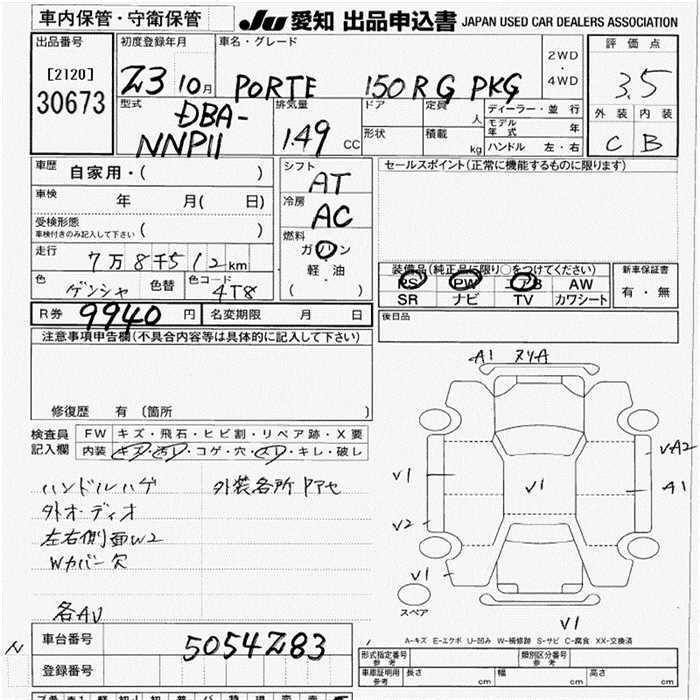 車内保管・守衛保管
JU 愛知 出品申込書 JAPAN USED CAR DEALERS ASSOCIATION
出品番号
[2120]
30673
初度登録年月
23 10月
車名・グレード
PORTE 150R G PKG
2WD
・
4WD
評価点
3.5
外装 内装
C B
型式
DBA-
NNP11
排気量
1.49 CC
ドア
形状
定員 人
積載 kg
ディーラー・並行
モデル年式 年
ハンドル 左・右
車歴 自家用・( )
車検 年 月( 日)
受検形態
車検付きのみ記入して下さい ( )
走行 7万8千512km
色 ゲンシャ 色替 色コード 4T8
シフト
AT
冷房
AC
燃料
ガソリン
軽・油
( )
セールスポイント(正常に機能するものに限ります)
装備品(純正品に限り○をつけてください)
PS PW エアB AW
SR ナビ TV カワシート
新車保証書
有・無
R券 9940 円 名変期限 月 日
後日品
注意事項申告欄(不具合内容等は具体的に記入して下さい)
修復歴 有 〔箇所 〕
検査員
記入欄
FW キズ・飛石・ヒビ割・リペア跡・X要
内装 キズ・汚レ・コゲ・穴・スレ・キレ・破レ
ハンドルハゲ 外装各所タッチ
外オーディオ
左右側面W2
Wカバー欠
各AU
A1 ヌリA
V1
V2
V1
V1
VA2
A1
V1
スペア
A-キズ E-エクボ U-凹み W-補修跡 S-サビ C-腐食 XX-交換済
車台番号 5054283
登録番号
形式指定番号
参考
類別区分番号
参考
車庫証明用
参考
長さ cm 幅 cm 高さ cm